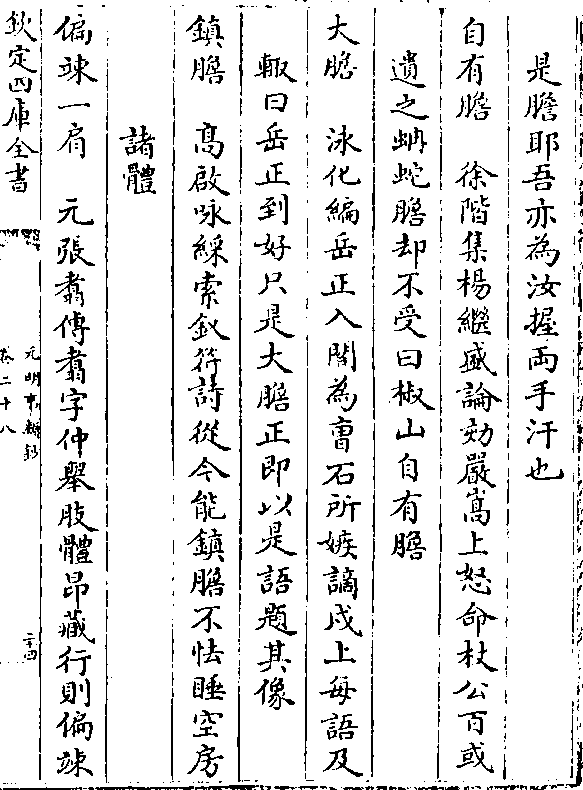 是膽耶吾亦為汝握兩手汗也
自有膽　徐階集楊繼盛論劾嚴嵩上怒命杖公百或
遺之蚺蛇膽却不受曰椒山自有膽
大膽　泳化編岳正入閣為曹石所嫉謫戍上每語及
輙曰岳正到好只是大膽正即以是語題其像
鎮膽　高啟咏綵索釵符詩從今能鎮膽不怯睡空房
諸體
偏竦一肩　元張翥傳翥字仲舉肢體昂藏行則偏竦
欽定四庫全書
元明事類鈔
卷二十八
二十四